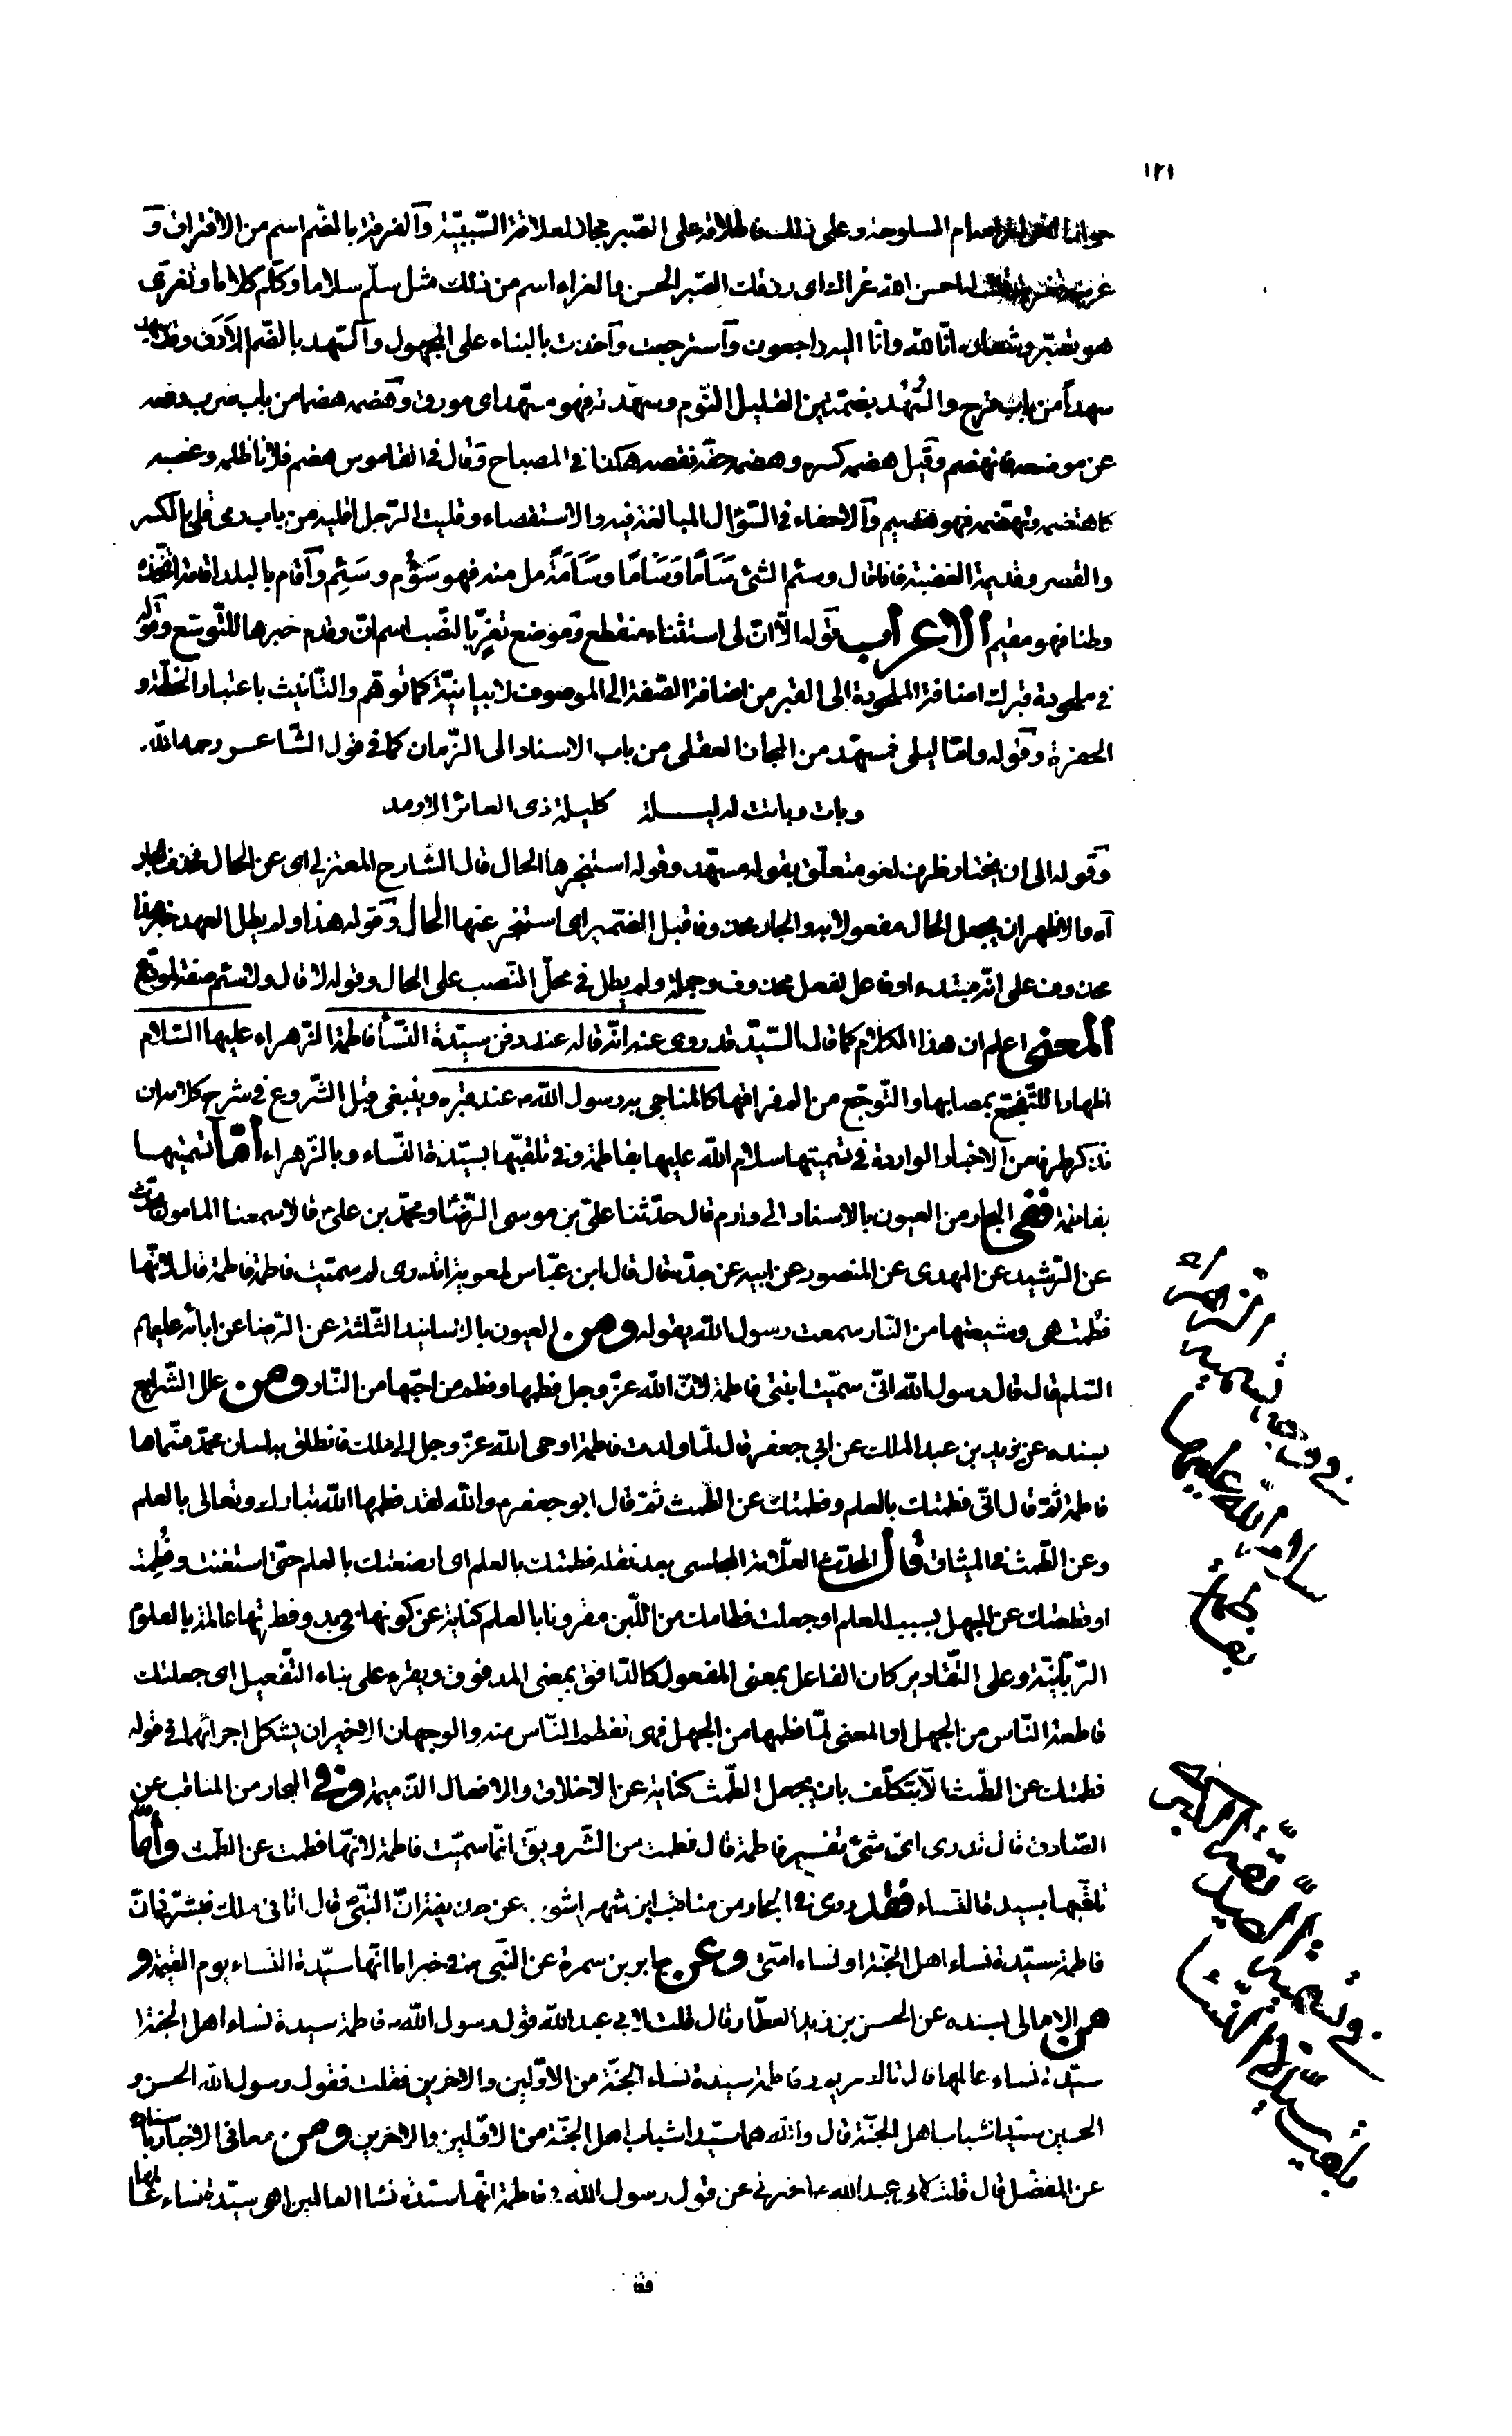 ١٢١
المسلوخة وعلى ذلك فاطلاقه على الصّبر مجاز لعلاقة السّببيّة وآلفرقة بالضّم اسم من الافتراق و
احسن الله عزاك اى رزقك الصّبر الحسن والعزاء اسم من ذلك مثل سلّم سلاما وكلّم كلاما وتعزّى
هو تصبّر وشعاره انّا لله وانّا اليه راجعون وآسترجعت وآخذت بالبناء على المجهول وآلسّهد بالضّم الارق وقد سهد
سهداً من باب فرح والسُّهُد بضمّتين القليل النّوم وسهّدته فهو مسهّد اى مورق وهضمه هضما من باب ضرب دفعه
عن موضعه فانهضم وقيل هضمه كسره وهضمه حقّه نقصه هكذا في المصباح وقال في القاموس هضم فلانا ظلمه وغصبه
كاهتضمه وتهضّمه فهو هضيم وآلاحفاء في السّؤال المبالغة فيه والاستقصاء وقليت الرّجل اقليه من باب رمى قلى بالكسر
والقصر ومقلية ابغضته فانا قال وسئم الشئ سَأَمًا وَسَأْمًا وسَآمَةً مل منه فهو سَؤُم وسَئِم وآقام بالبلد اقامة اتّخذه
وطنا فهو مقيم الاعراب قوله الّا انّ لى استثناء منقطع وموضع تعزّ بالنّصب اسم انّ وقدم خبرها للتّوسّع وقوله
في ملحودة قبرك اضافة الملحودة الى القبر من اضافة الصّفة الى الموصوف لا بيانيّة كما توهّم والتّانيث باعتبار الخطّة و
الحفرة وقوله وامّا ليلى فمسهّد من المجاز العقلى من باب الاسناد الى الزّمان كما في قول الشّاعر رحمه الله
وبات وباتت له ليلة كليلة ذى العائر الارمد
وقوله الى ان يختار ظرف لغو متعلّق بقوله مسهّد وقوله استخبرها الحال قال الشّارح المعتزلي اى عن الحال فحذف الجار
اه والاظهر ان يجعل الحال مفعولا به والجار محذوفا قبل الضّمير اى استخبر عنها الحال وقوله هذا ولم يطل العهد خبر هذا
محذوف على انّه مبتدء او فاعل لفعل محذوف وجملة ولم يطل في محلّ النّصب على الحال وقوله لا قال ولا سئم صفة لمودّع
المعنى اعلم ان هذا الكلام كما قال السّيّد قد روى عنه انّه قاله عند دفن سيّدة النّسآ فاطمة الزّهراء عليها السّلام
اظهارا للتّفجّع بمصابها والتّوجّع من الم فراقها كالمناجى به رسول الله عند قبره وينبغى قبل الشّروع في شرح كلامه ان
نذكر طرفا من الاخبار الواردة في تسميتها سلام الله عليها بفاطمة وفي تلقّبها بسيّدة النّساء وبالزّهراء امّا تسميتها
بفاطمة ففى البحار من العيون بالاسناد الى دارم قال حدّثنا علىّ بن موسى الرّضا ومحمّد بن على قالا سمعنا المامون يحدّث
عن الرّشيد عن المهدى عن المنصور عن ابيه عن جدّه قال قال ابن عبّاس لمعوية اتدرى لم سمّيت فاطمة فاطمة قال لانّها
فطمت هى وشيعتها من النّار سمعت رسول الله يقوله ومن العيون بالاسانيد الثّلثة عن الرّضا عن ابائه عليهم
السّلم قال قال رسول الله انّى سمّيت ابنتى فاطمة لانّ الله عزّ وجل فطمها وفطم من احبّها من النّار ومن علل الشّرايع
بسنده عن يزيد بن عبد الملك عن ابي جعفر قال لمّا ولدت فاطمة اوحى الله عزّ وجل الى ملك فانطلق به لسان محمّد فسمّاها
فاطمة ثمّ قال انّى فطمتك بالعلم وفطمتك عن الطّمث ثمّ قال ابو جعفر والله لقد فطمها الله تبارك وتعالى بالعلم
وعن الطّمث في الميثاق قال المحدّث العلّامة المجلسى بعد نقله فطمتك بالعلم اى ارضعتك بالعلم حتّى استغنت وفُطِمت
او قطعتك عن الجهل بسبب العلم او جعلت فطامك من اللّبن مقرونا بالعلم كناية عن كونها في بدو فطرتها عالمة بالعلوم
الرّبّانيّة وعلى التّقادير كان الفاعل بمعنى المفعول كالدّافق بمعنى المدفوق ويقرء على بناء التّفعيل اى جعلتك
قاطعة النّاس من الجهل او المعنى لمّا فطمها من الجهل فهى تفطم النّاس منه والوجهان الاخيران يشكل اجرائهما في قوله
فطمتك عن الطّمث الّا بتكلّف بان يجعل الطّمث كناية عن الاخلاق والافعال الذّميمة وفي البحار من المناقب عن
الصّادق قال تدرى اىّ شئ تفسير فاطمة قال فطمت من الشّر ويق انّما سمّيت فاطمة لانّها فطمت عن الطّمث وامّا
تلقّبها بسيدة النّساء فقد روى في البحار من مناقب ابن شهراشوب عن حذيفة انّ النّبىّ قال اتانى ملك فبشّرنى انّ
فاطمة سيّدة نساء اهل الجنّة او نساء امّتى وعن جابر بن سمرة عن النّبى في خبر اما انّها سيّدة النّساء يوم القيمة و
من الامالى بسنده عن الحسن بن زياد العطّار قال قلت لابي عبد الله قول رسول الله فاطمة سيدة نساء اهل الجنّة ا
سيّدة نساء عالمها قال تاك مريم وفاطمة سيدة نساء الجنّة من الاوّلين والاخرين فقلت فقول رسول الله الحسن و
الحسين سيّدا شباب اهل الجنّة قال والله هما سيّدا شباب اهل الجنّة من الاوّلين والاخرين ومن معانى الاخبار باسناده
عن المفضّل قال قلت لابى عبد الله اخبرنى عن قول رسول الله في فاطمة انّها سيّدة نسآ العالمين اهى سيّدة نساء عالمها
الزهراء
في وجه تسمية
سلام الله عليها
بفاطمة
الصديقة الكبرى
في وجه تسمية
بلقب سيّدة النّسآء
فقا